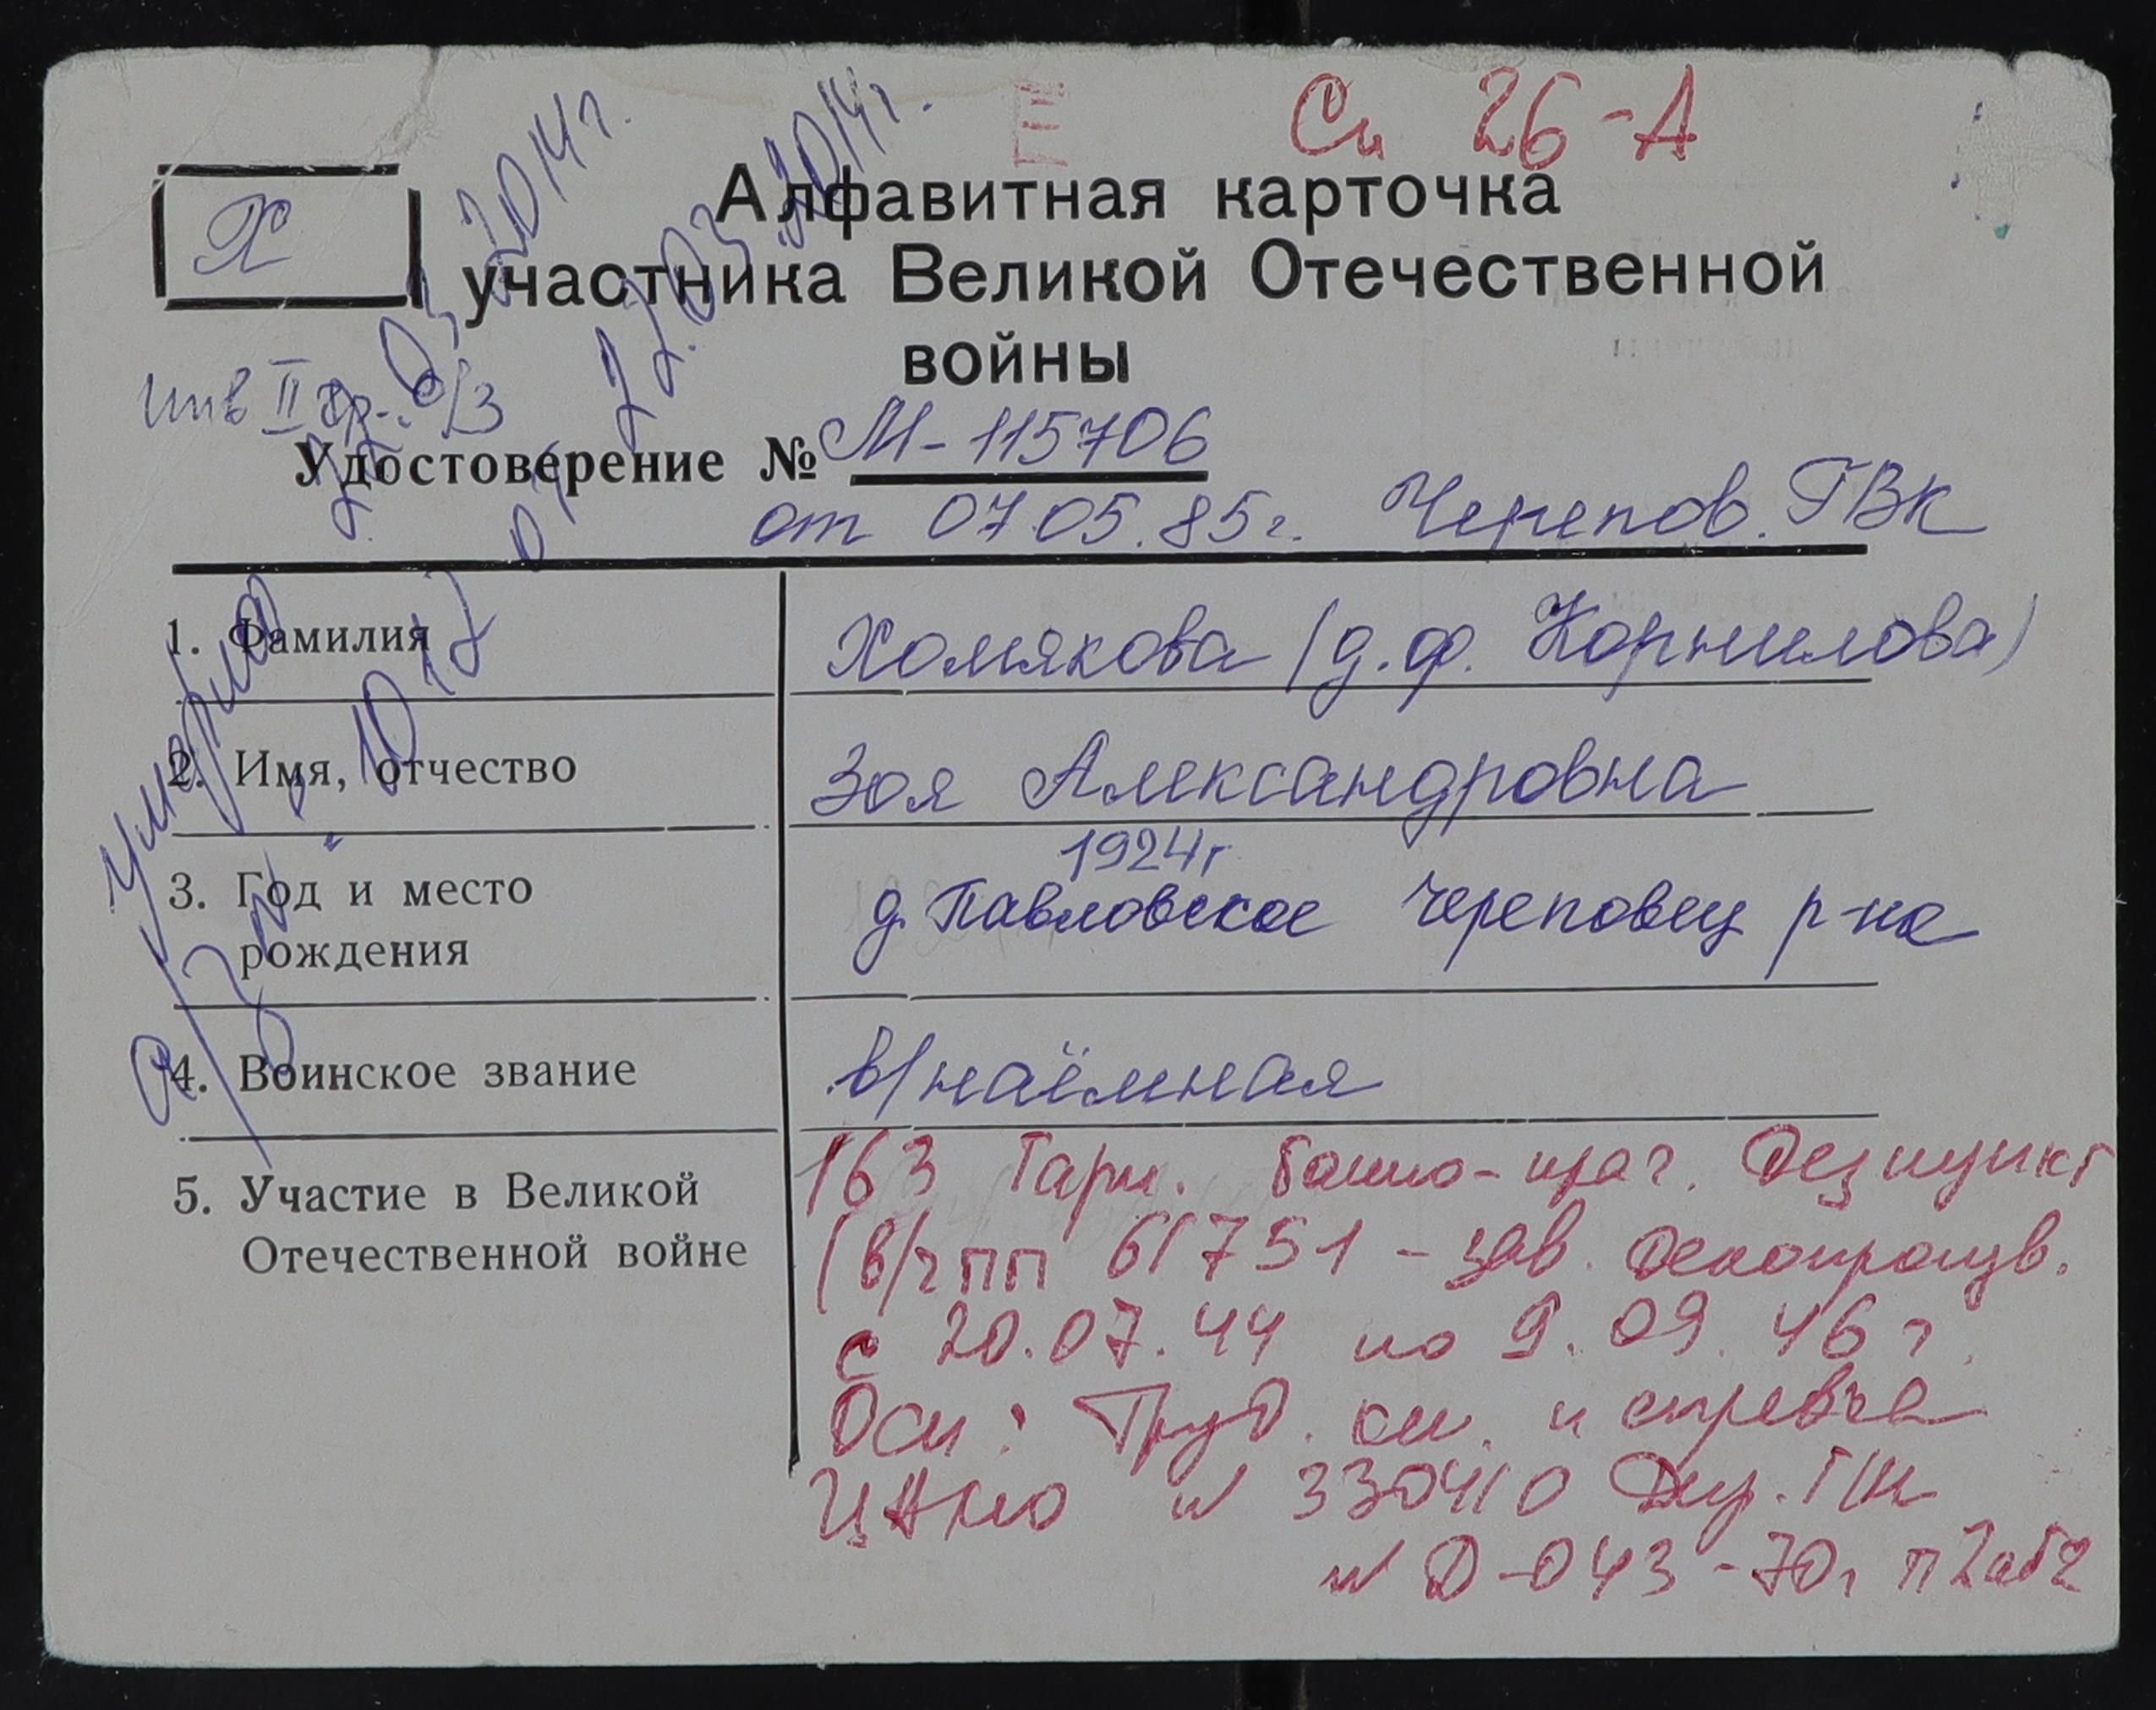 Си 26-А
Х
Алфавитная карточка
участника Великой Отечественной
войны
инв II гр. о/з
Удостоверение № М-115706
от 07.05.85г. Черепов. ГВК
1. Фамилия Хомякова (д.ф. Корнилова)
2. Имя, отчество Зоя Александровна
1924г
3. Год и место рождения д. Павловское Череповец р-на
4. Воинское звание в/наёмная
5. Участие в Великой Отечественной войне
163 Гарн. банно-прач. Дезпункт
(в/ч пп 61751 - зав. делопроизв.
с 20.07.44 по 9.09.46 г.
Осн: Труд. кн. и справка
ЦАМО № 330410 Дир. ГШ
№ Д-043-70г п 2аб2
умерла
22.03.2014г.